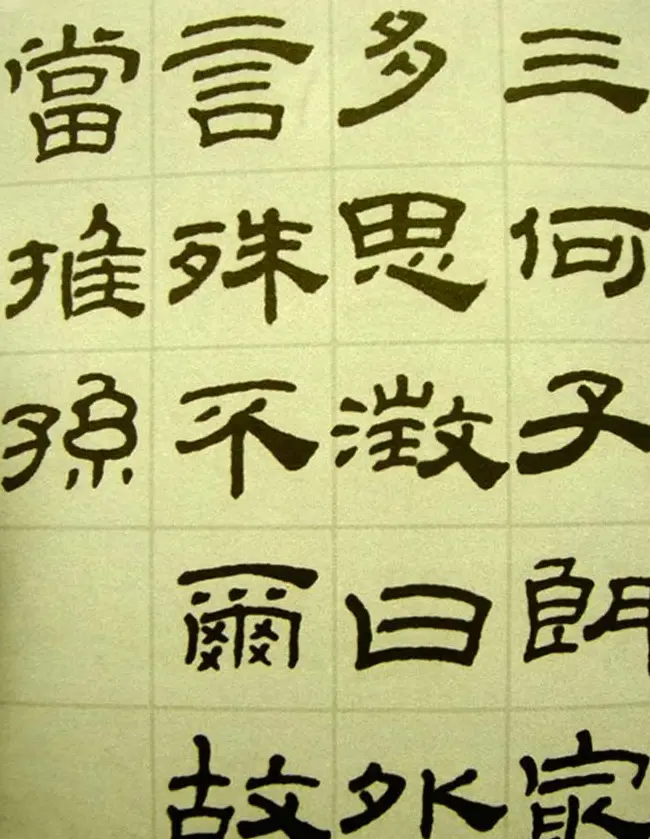 三何子朗最
多思澂曰外
言殊不爾故
當推孫